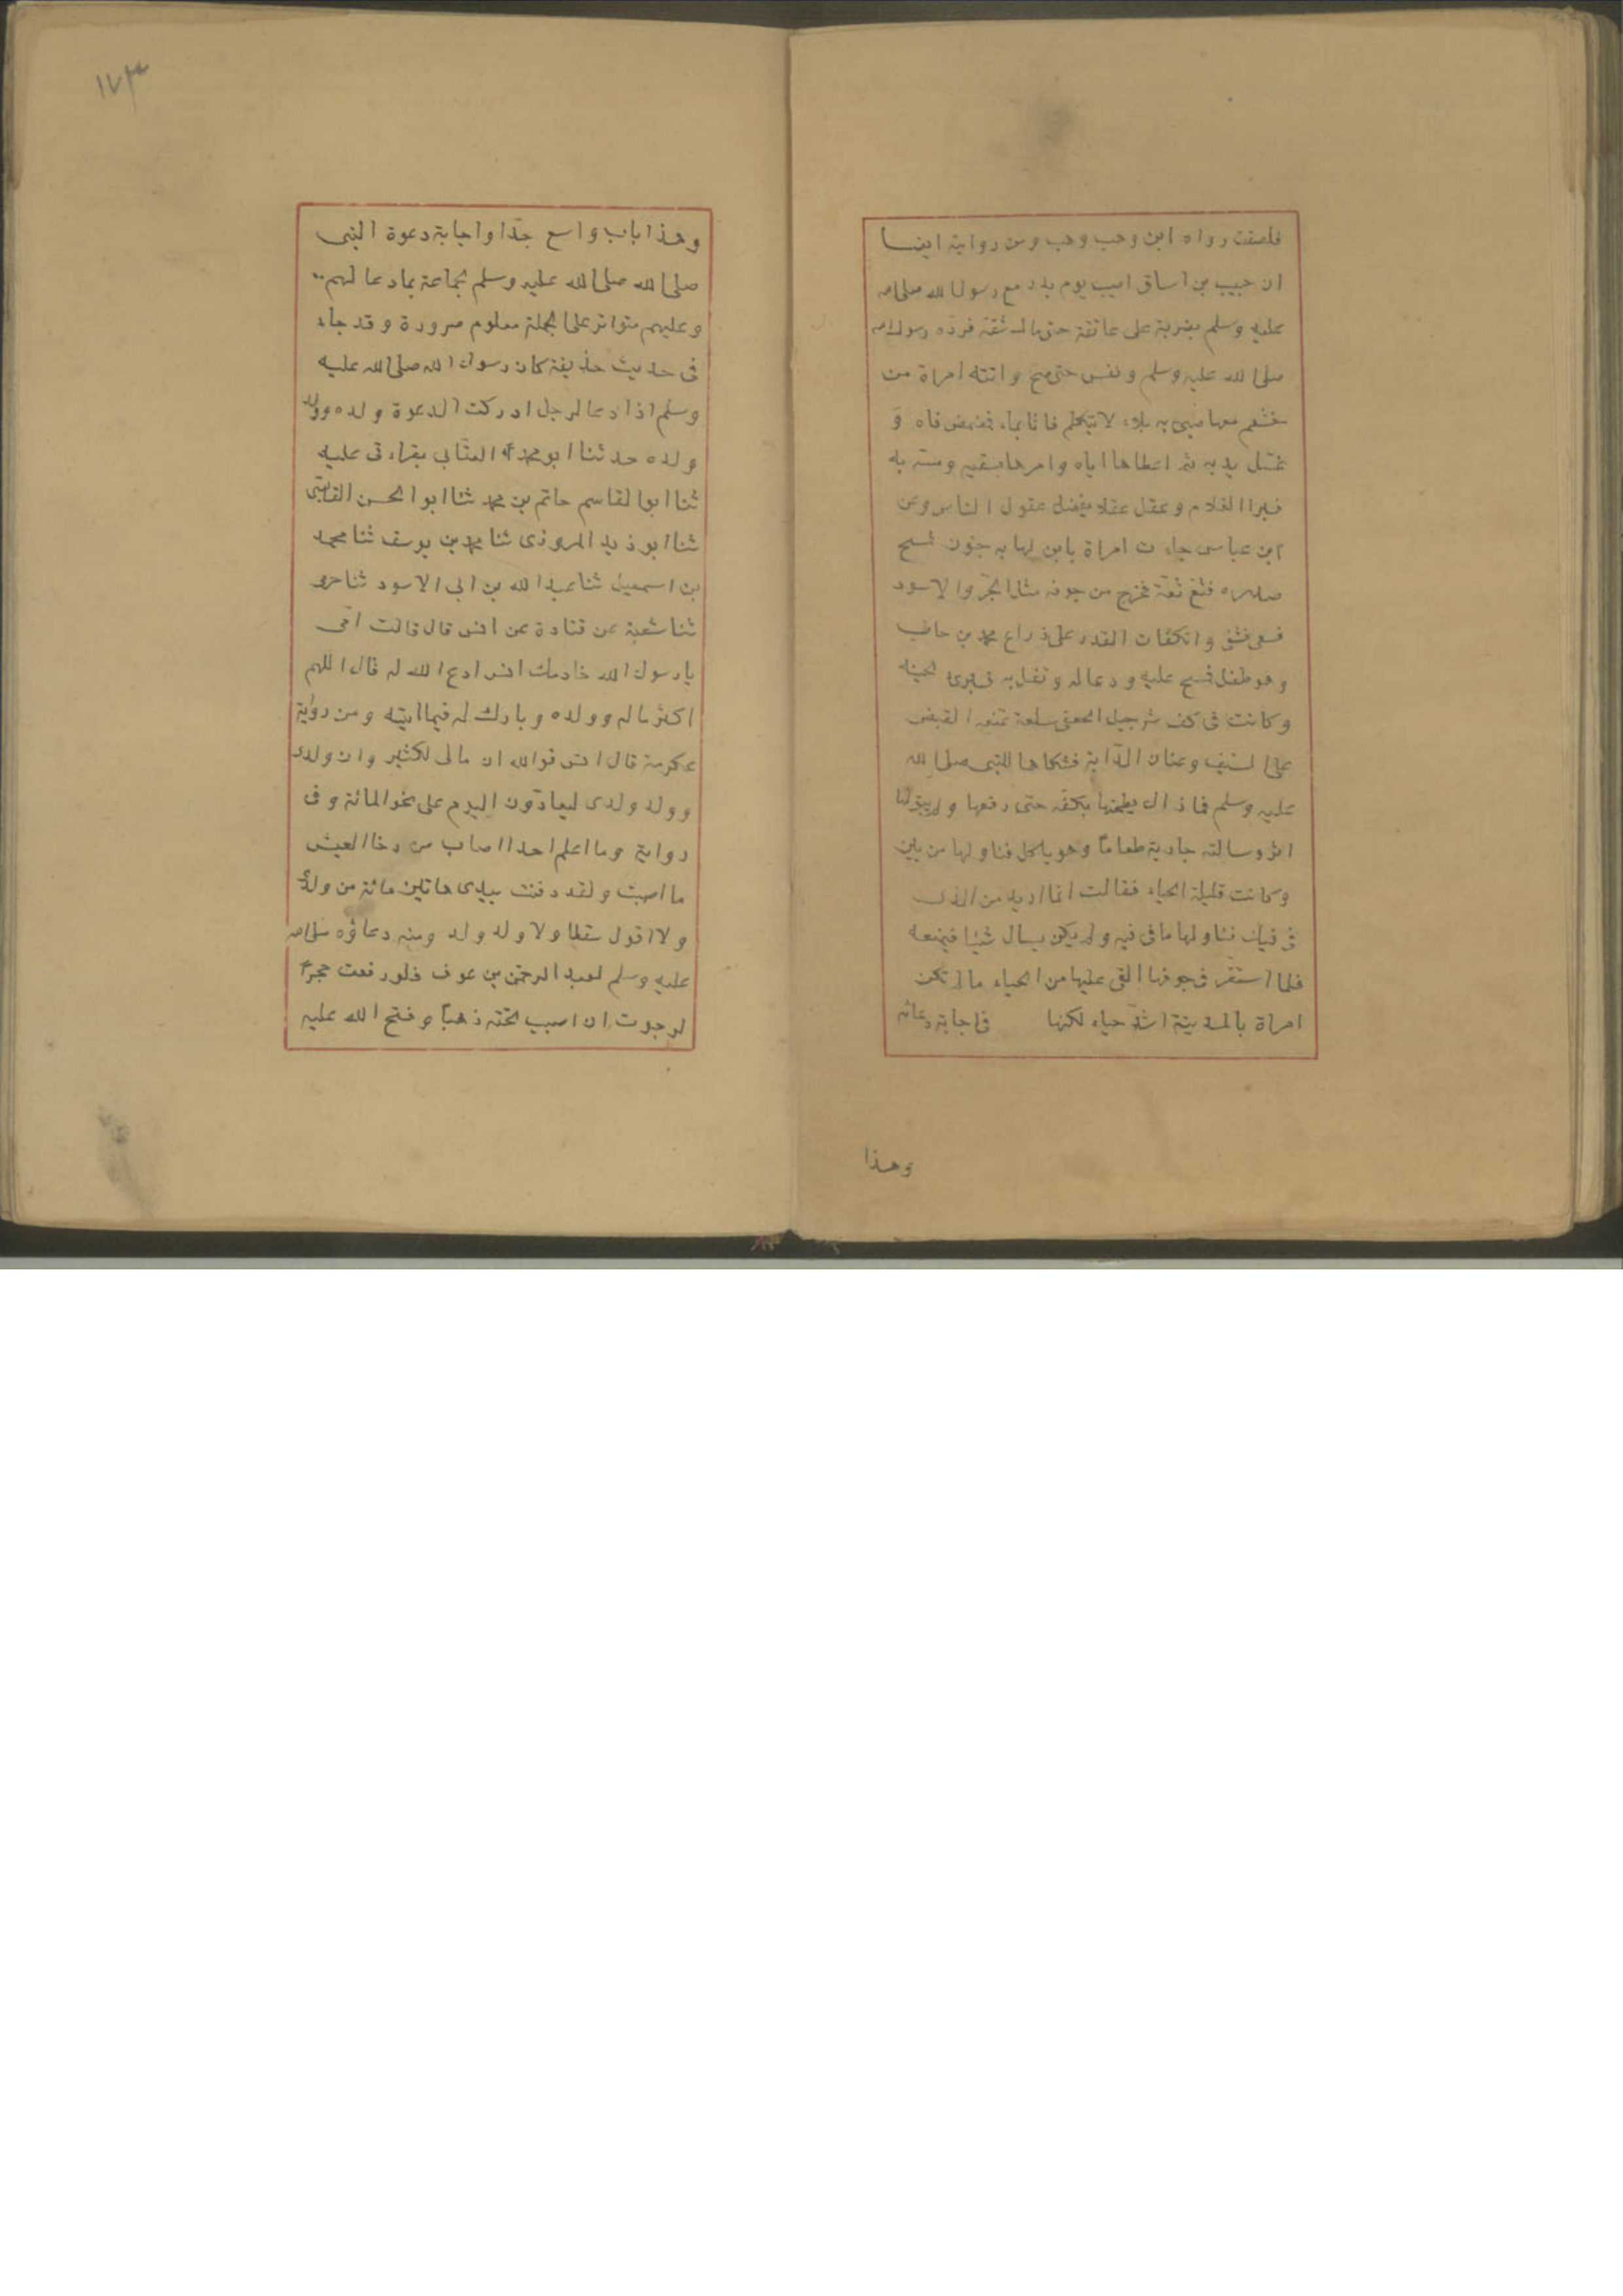 فلصقت رواه ابن وهب وهب ومن روايته ايضا
ان حبيب بن اساق اصيب يوم بدر مع رسول الله صلى الله
عليه وسلم بضربة على عاتقة حتى مال شقه فرده رسول الله
صلى الله عليه وسلم ونفس حتى صح واتته امراة من
خثعم معها صبى به بلاء لا يتكلم فاتا بماء فمضمض فاه و
غسل يديه ثم اعطاها اياه وامرها بسقيه ومسه به
فبرا الغلام وعقل عقلا يفضل عقول الناس وعن
ابن عباس جاءت امراة بابن لها به جنون فمسح
صدره فثع ثعة فخرج من جوفه مثل الجرو الاسود
فسعى فشفى وانكفات القدر على ذراع محمد بن حاطب
وهو طفل فمسح عليه ودعا له وتفل به فبرى لحينه
وكانت فى كف شرجيل الجعفى سلعة تمنعه القبض
على السيف وعنان الدابة فشكاها للنبى صلى الله
عليه وسلم فما زال يطحنها بكفه حتى رفعها ولم يبق لها
اثر وسالته جارية طعاما وهو ياكل فناولها من بين
وكانت قليلة الحياء فقالت انما اريد من الذى
فى فيك فناولها ما فى فيه ولم يكن يسال شيئا فيمنعه
فلما استقر فى جوفها القى عليها من الحياء ما لم تكن
امراة بالمدينة اشد حياء لكنها فى اجابة دعائه
وهذا
١٧٣
وهذا باب واسع جدا واجابة دعوة النبى
صلى الله صلى الله عليه وسلم لجماعة بما دعا لهم
وعليهم متواتر على الجملة معلوم ضرورة وقد جاء
فى حديث حذيفة كان رسول الله صلى الله عليه
وسلم اذا دعا لرجل ادركت الدعوة ولده وولد
ولده حدثنا ابو محمد العتابى بقراءتى عليه
ثنا ابو القاسم حاتم بن محمد ثنا ابو الحسن القابسى
ثنا ابو زيد المروزى ثنا محمد بن يوسف ثنا محمد
بن اسمعيل ثنا عبد الله بن ابى الاسود ثنا حرمى
ثنا شعبة عن قتادة عن انس قال قالت امى
يا رسول الله خادمك انس ادع الله له قال اللهم
اكثر ماله وولده وبارك له فيما اتيته ومن رواية
عكرمة قال انس فوالله ان مالى لكثير وان ولدى
وولد ولدى ليعادون اليوم على نحو المائة وفى
رواية وما اعلم احدا اصاب من رخا العيش
ما اصبت ولقد دفنت بيدى هاتين مائة من ولدى
ولا اقول سقطا ولا ولد ولد ومنه دعاؤه صلى الله
عليه وسلم لعبد الرحمن بن عوف فلو رفعت حجرا
لرجوت ان اصيب تحته ذهبا وفتح الله عليه